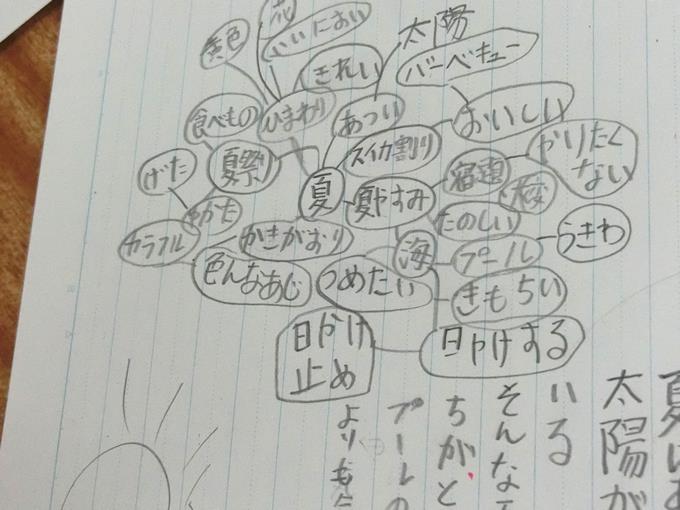 花
いいにおい
黄色
きれい
太陽
バーベキュー
食べもの
ひまわり
あつい
おいしい
スイカ割り
夏祭り
げた
夏
夏やすみ
宿題
やりたく
ない
ゆかた
カラフル
かきがおり
たのしい
海
プール
うきわ
色んなあじ
つめたい
きもちい
日かけ
止め
日やけする
夏は
太陽が
いる
そんな
ちがと
プールの
よりも